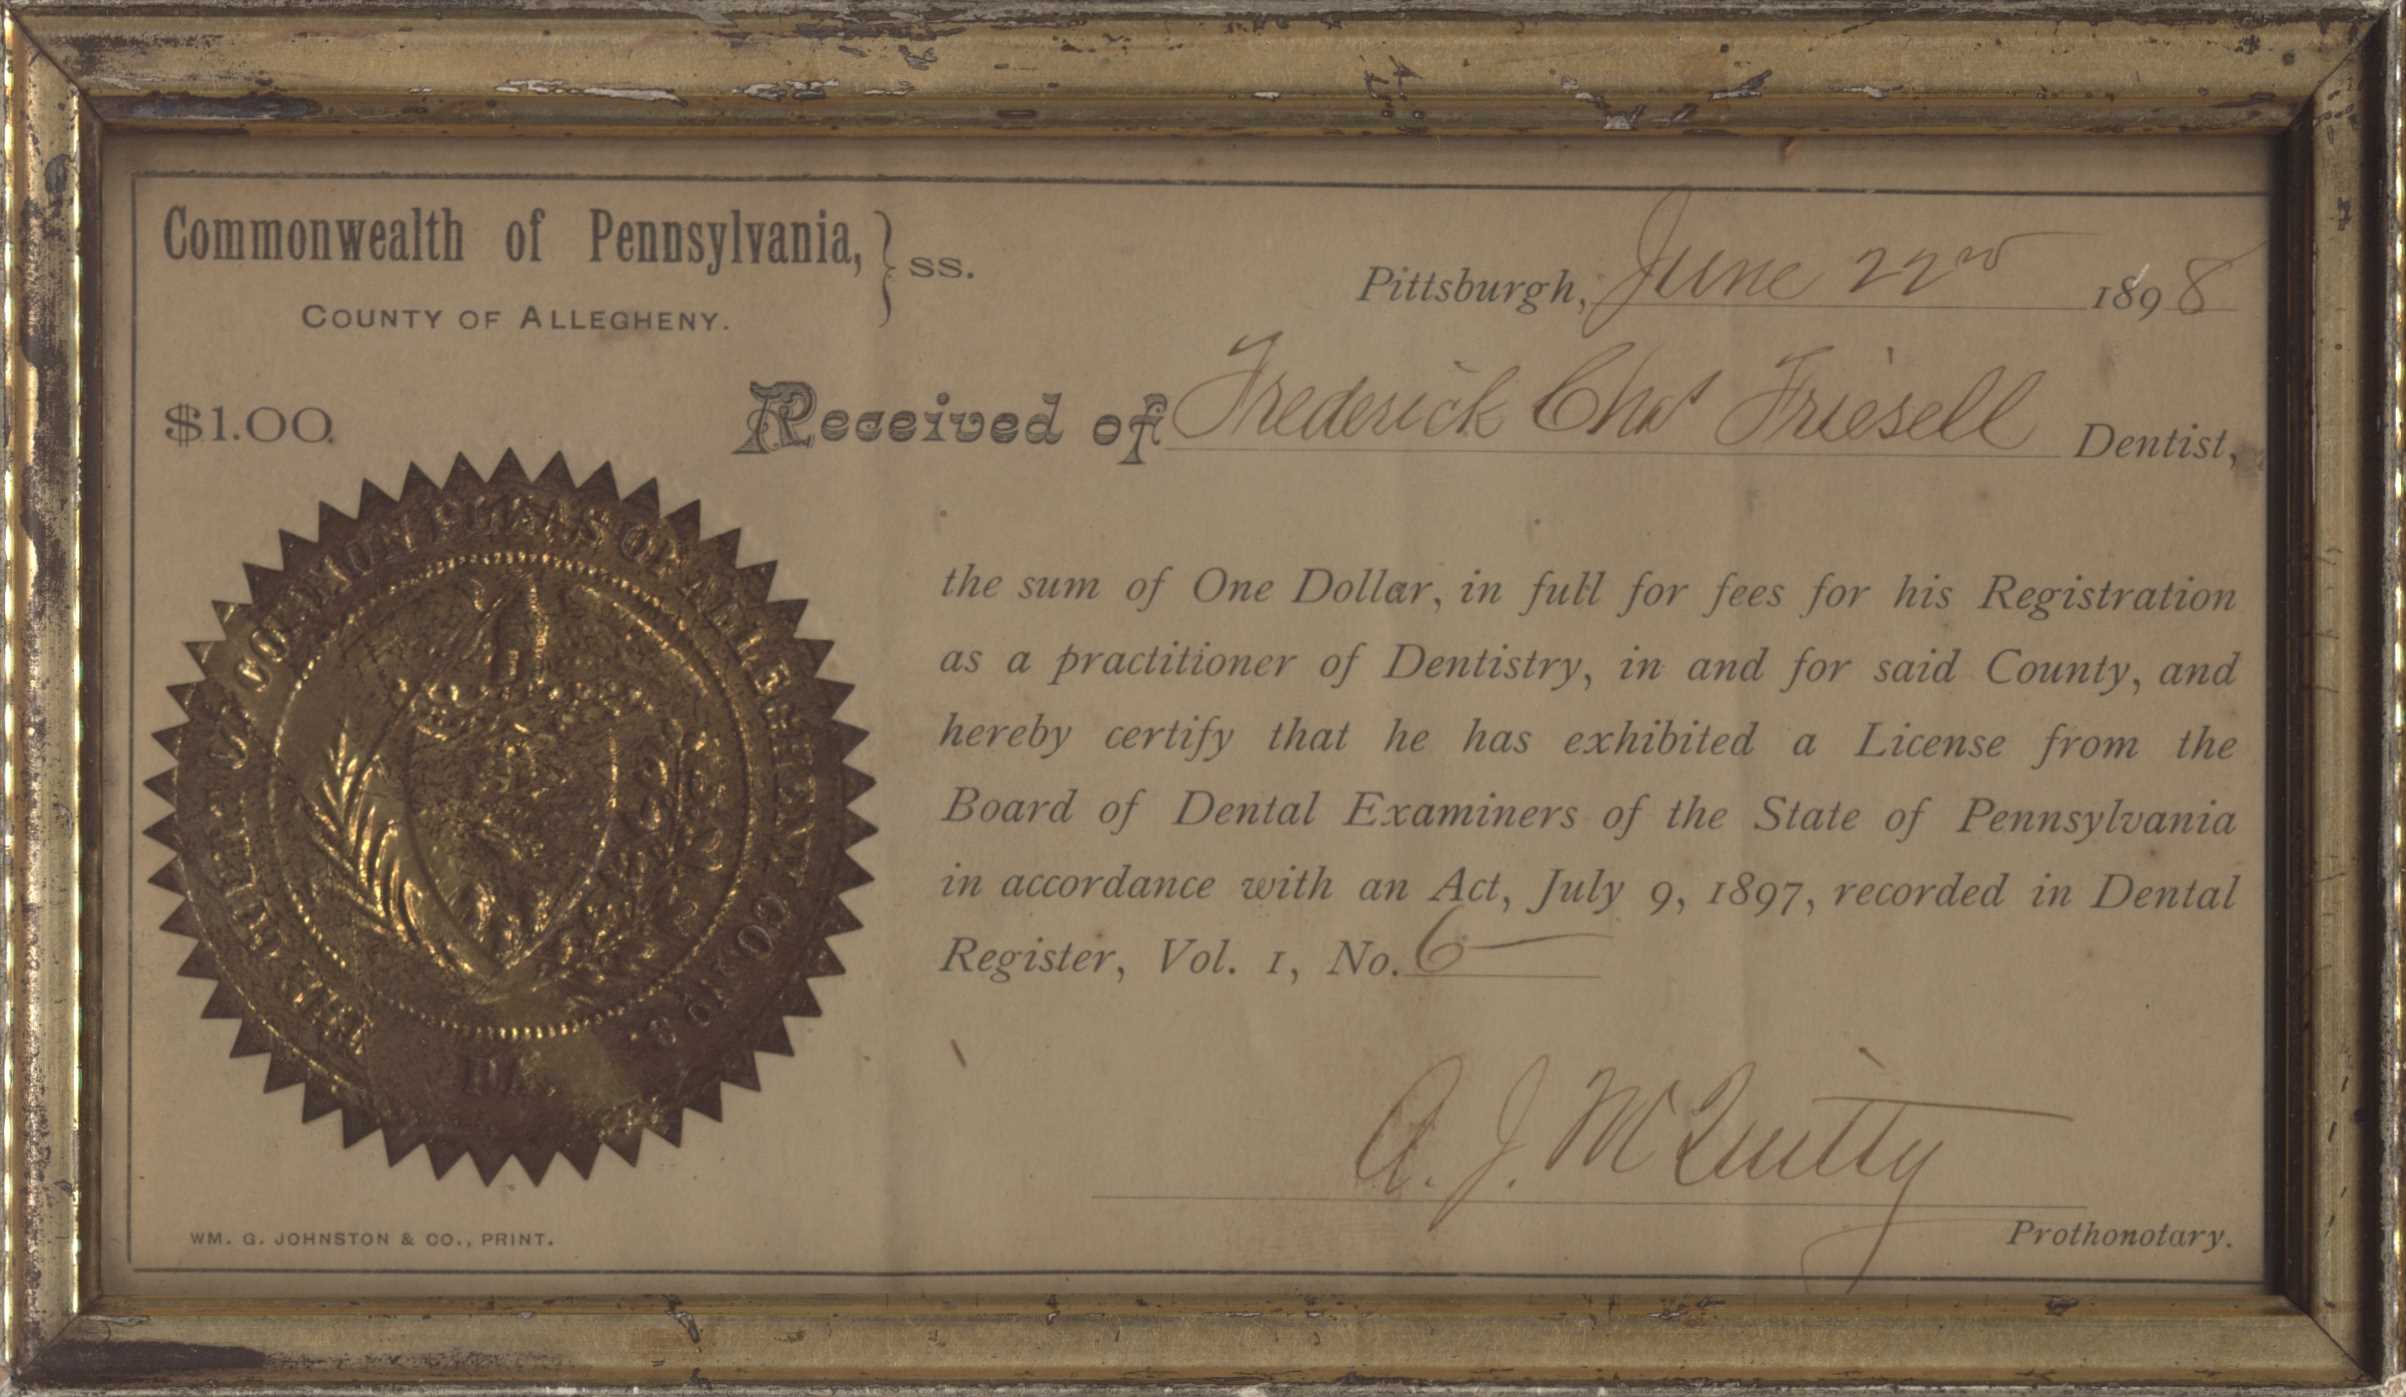 Commonwealth of Pennsylvania, } ss.
COUNTY OF ALLEGHENY.
Pittsburgh, June 22nd 1898
$1.00.
Received of Frederick Chas Friesell Dentist,
the sum of One Dollar, in full for fees for his Registration
as a practitioner of Dentistry, in and for said County, and
hereby certify that he has exhibited a License from the
Board of Dental Examiners of the State of Pennsylvania
in accordance with an Act, July 9, 1897, recorded in Dental
Register, Vol. 1, No. 6
A. J. McQuitty
Prothonotary.
COMMON PLEAS OF ALLEGHENY
WM. G. JOHNSTON & CO., PRINT.